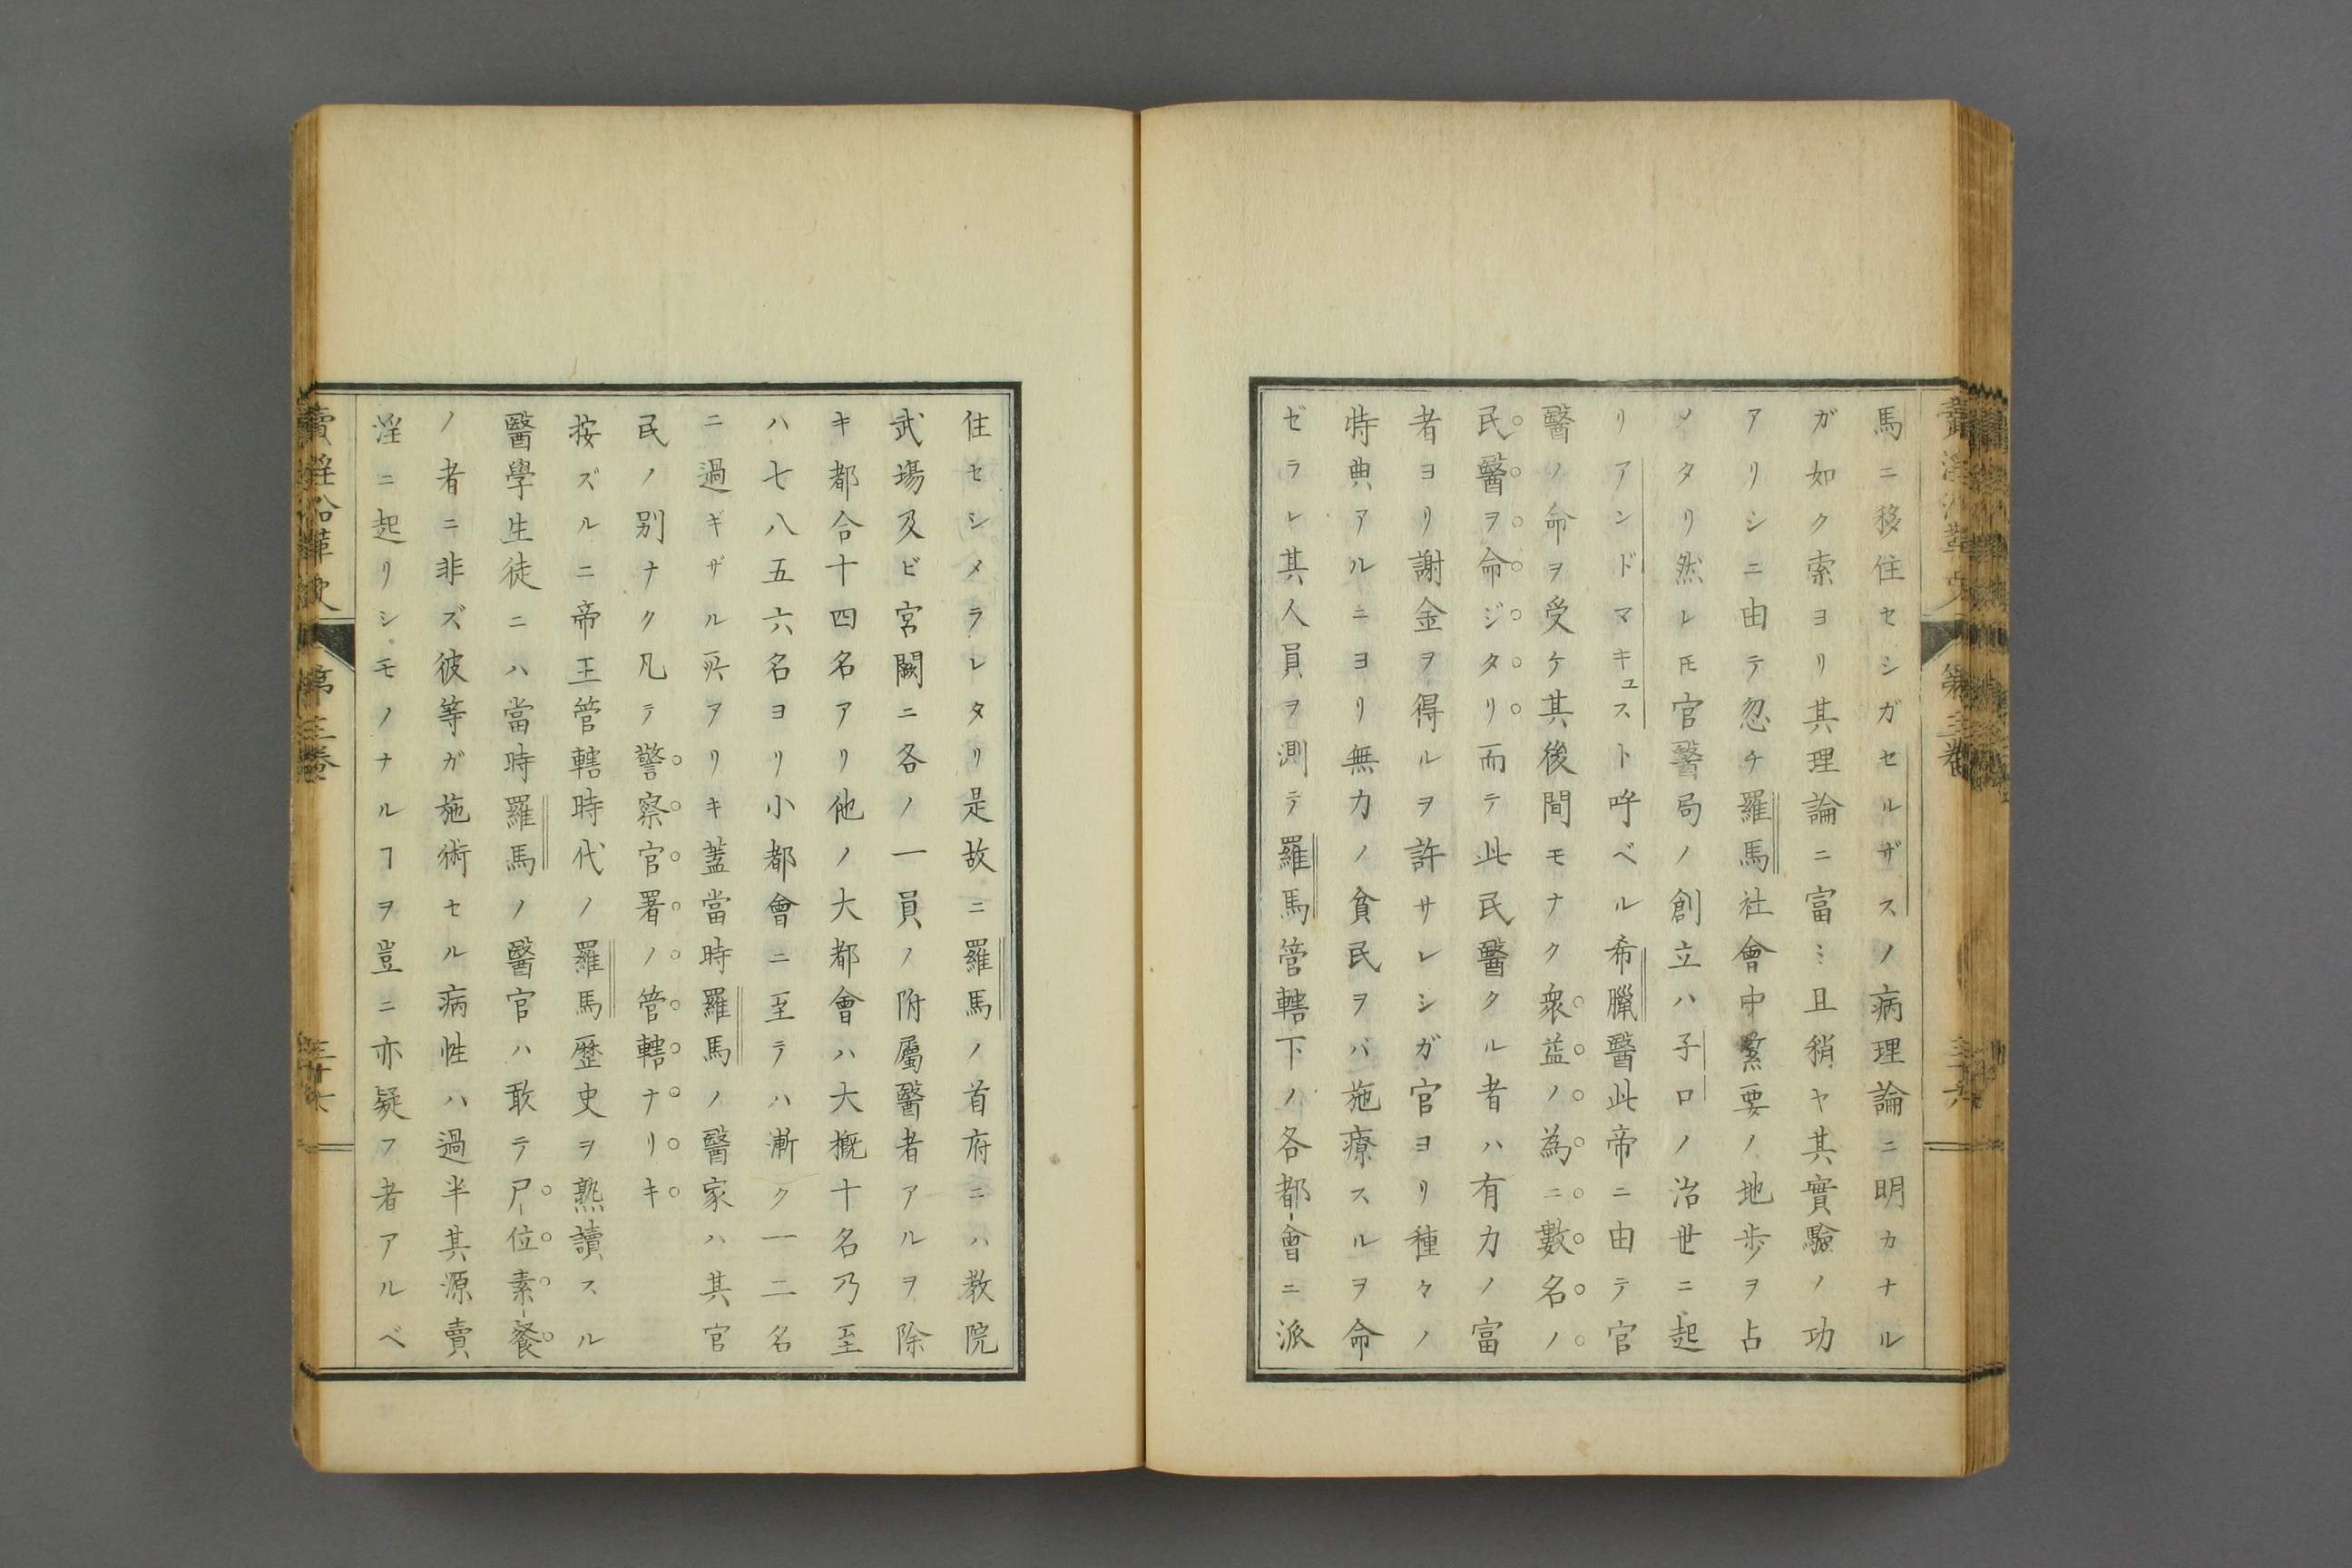 馬ニ移住セシガセルザスノ病理論ニ明カナル
ガ如ク索ヨリ其理論ニ富ミ且稍ヤ其實驗ノ功
アリシニ由テ忽チ羅馬社會中緊要ノ地歩ヲ占
メタリ然レ𪜈官醫局ノ創立ハ子ロノ治世ニ起
リアンドマキュスト呼ベル希臘醫此帝ニ由テ官
醫ノ命ヲ受ケ其後間モナク衆益ノ為ニ數名ノ
民醫ヲ命ジタリ而テ此民醫タル者ハ有力ノ富
者ヨリ謝金ヲ得ルヲ許サレシガ官ヨリ種々ノ
特典アルニヨリ無力ノ貧民ヲバ施療スルヲ命
ゼラレ其人員ヲ測テ羅馬管轄下ノ各都會ニ派
住セシメラレタリ是故ニ羅馬ノ首府ニハ教院
武場及ビ宮闕ニ各ノ一員ノ附屬醫者アルヲ除
キ都合十四名アリ他ノ大都會ハ大概十名乃至
ハ七八五六名ヨリ小都會ニ至テハ漸ク一二名
ニ過ギザル所アリキ蓋當時羅馬ノ醫家ハ其官
民ノ別ナク凡テ警察官署ノ管轄ナリキ
按ズルニ帝王管轄時代ノ羅馬歴史ヲ熟讀スル
醫學生徒ニハ當時羅馬ノ醫官ハ敢テ尸位素餐
ノ者ニ非ズ彼等ガ施術セル病性ハ過半其源賣
淫ニ起リシモノナルヿヲ豈ニ亦疑フ者アルベ
賣淫沿革史
第三卷